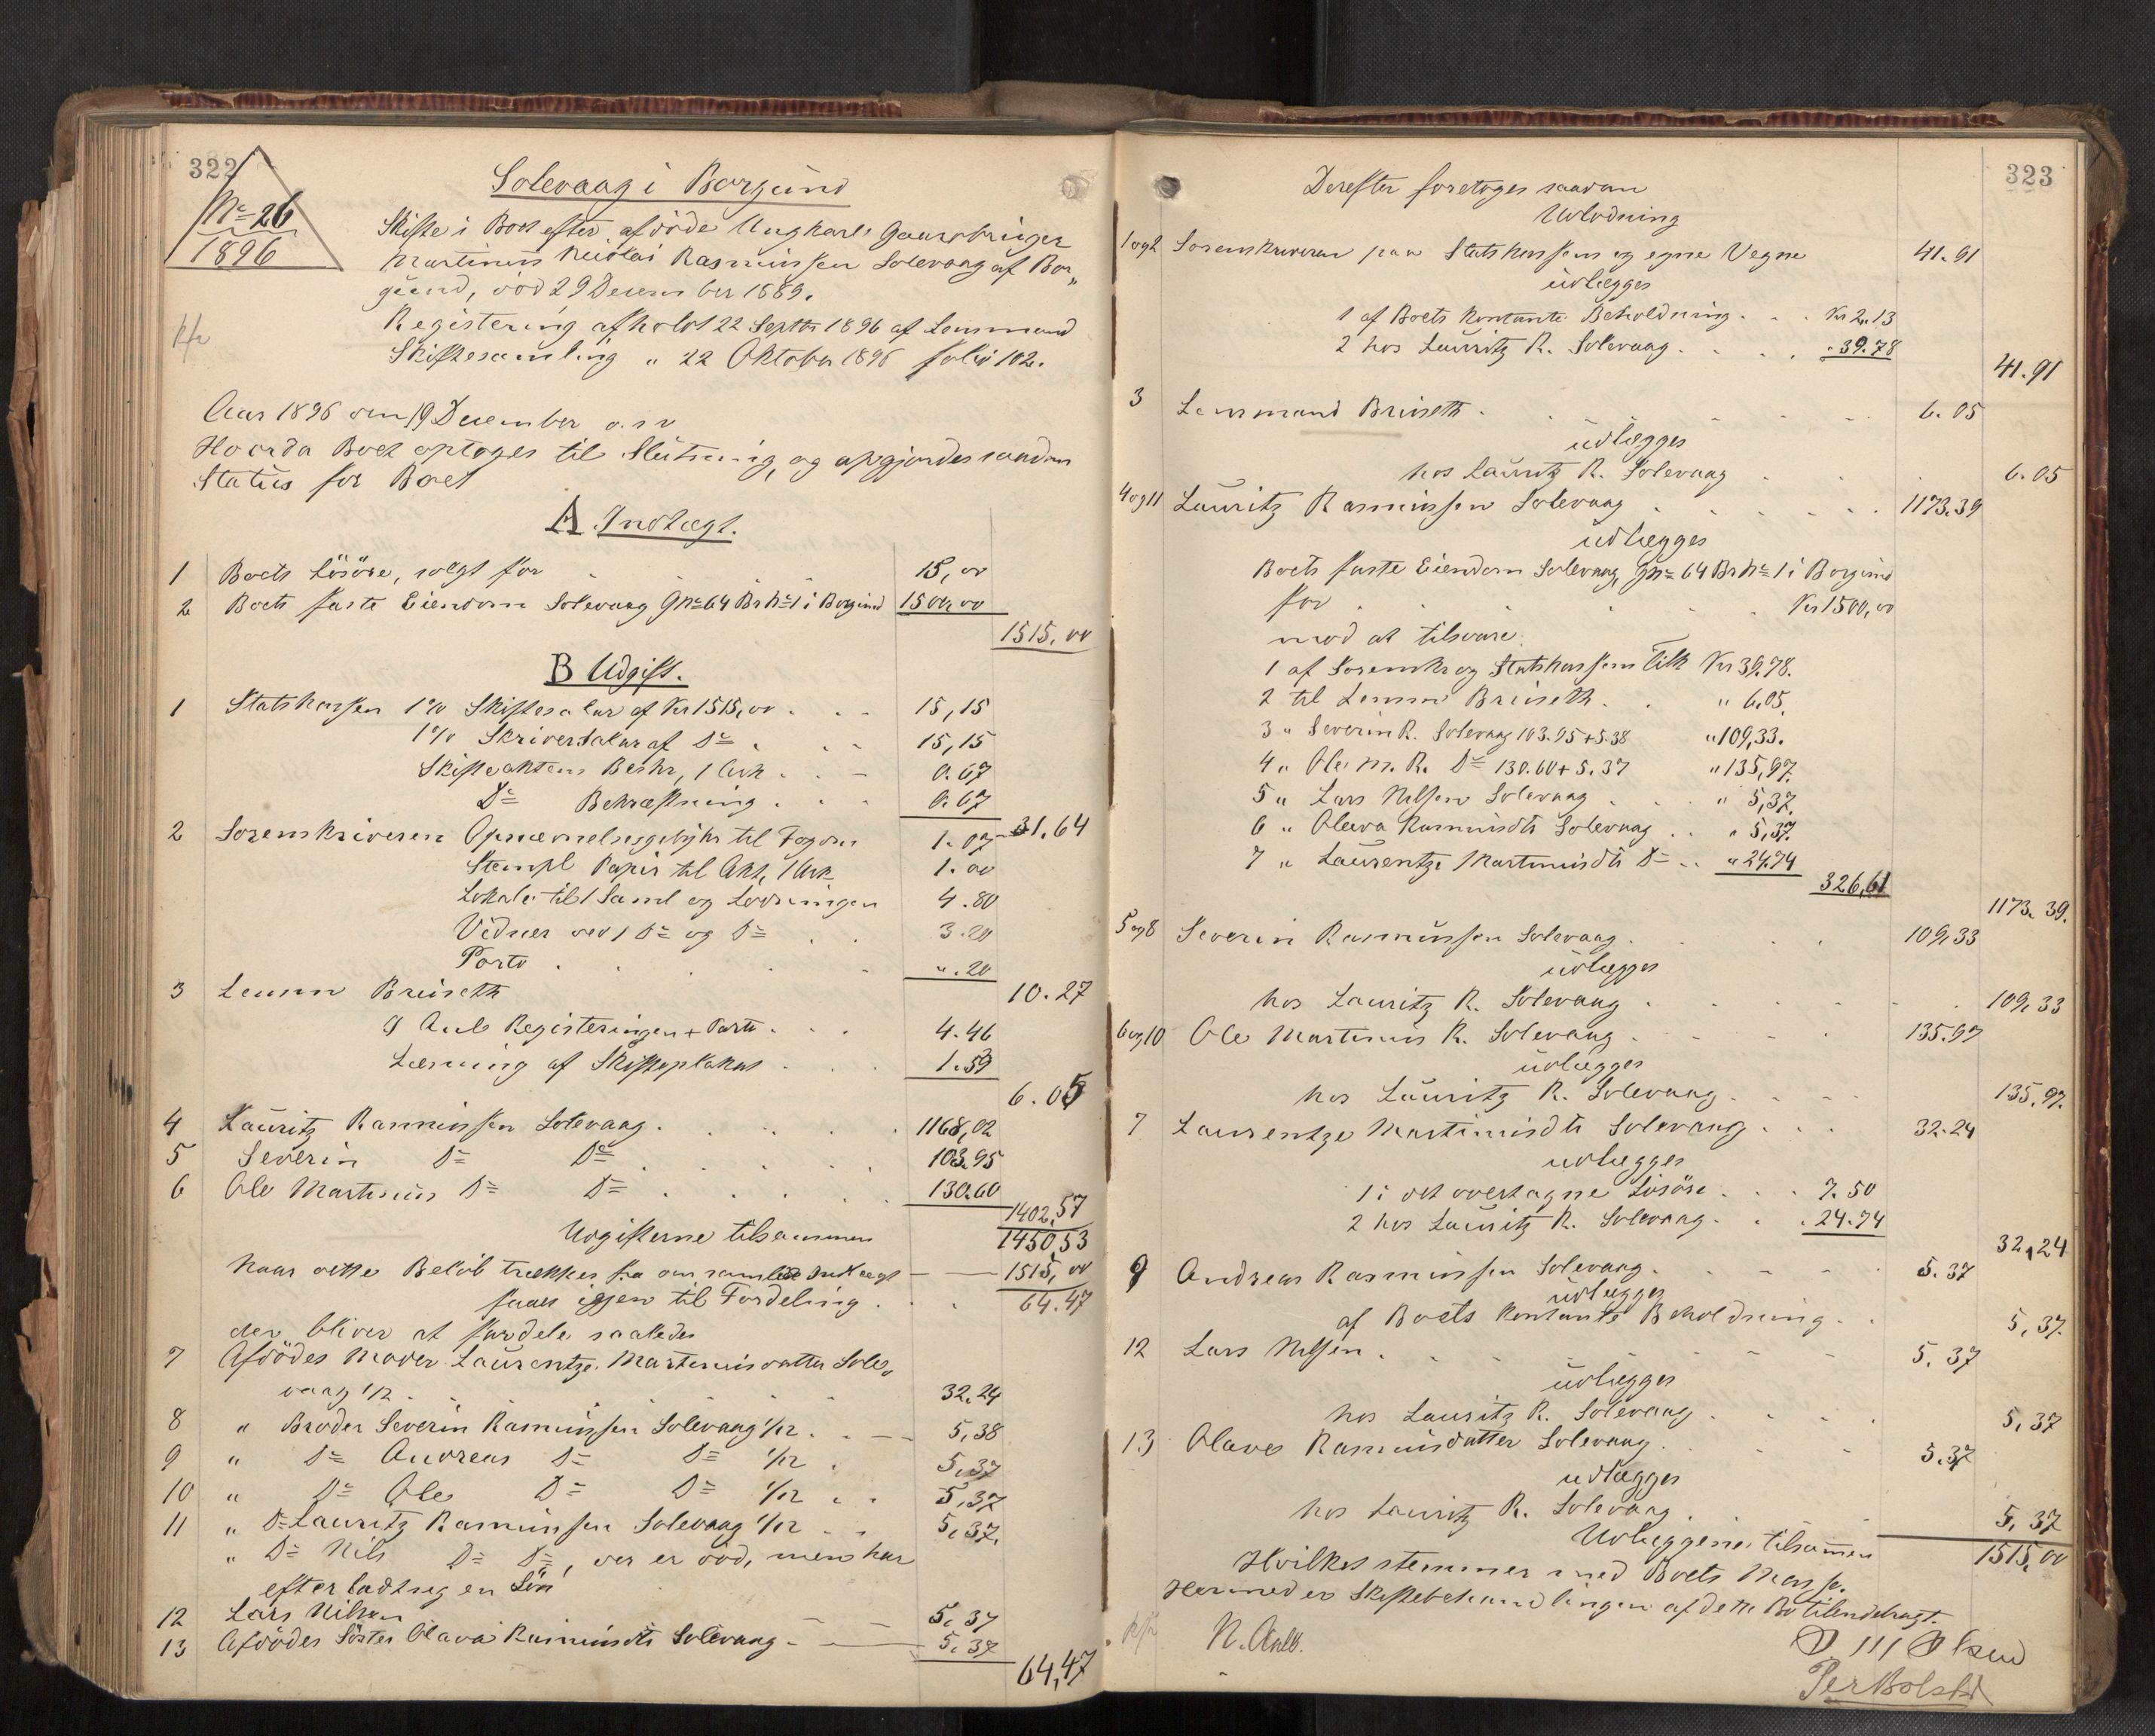 322
No 26
1896
Solevaag i Borgund
Skifte i Boet efter afdöde Ungkarl Gaardbruger
Martinus Nicolai Rasmussen Solevaag af Bor-
gund, död 29 December 1889.
Registering afholdt 22 Septbr 1896 af Lensmand
Skiftesamling " 22 Oktober 1896 folio 102.
Aar 1896 den 19 December o. s. v
Hvorda Boet optoges til Slutning, og opgjordes saadan
Status for Boet
A. Indtægt.
1 Boets Lösöre, solgt for . . . 15,00
2 Boets faste Eiendom Solevaag Gno 64 Brno 1 i Borgund 1500,00
1515,00
B Udgift.
1 Statskassen 1% Skiftesalar af Kr 1515,00 . . . 15,15
1% Skriversalar af Do . . . 15,15
Skifteaktens Beskr, 1 Ark . . 0.67
Do Bekræftning . . . 0.67
31.64
2 Sorenskriveren Opnævnelsesgebyhr til Fogden 1.07
Stempl Papir til Akt, 1 Ark 1.00
Lokale til 1 Saml og Lodningen 4.80
Vidner ved 1 Do og Do . . 3.20
Porto . . . . ". 20
10.27
3 Lensm Bruseth
Registeringen + Porto . . . 4.46
Læsning af Skifteplakat . . . 1.59
6.05
4 Lauritz Rasmussen Solevaag . . . . 1168,02
5 Severin Do Do . . . . 103.95
6 Ole Martinus Do Do . . . . 130.60
1402,57
Udgifterne tilsammen 1450,53
Naar dette Belöb trækkes fra den samlede Indtægt 1515,00
faaes igjen til Fordeling . . 64.47
der bliver at fordele saaledes
7 Afdödes Moder Laurentze Martinusdatter Sole-
vaag 1/2 . . . . 32.24
8 " Broder Severin Rasmussen Solevaag 1/12 . . 5,38
9 " Do Andreas Do Do 1/12 . 5,37
10 " Do Ole Do Do 1/12 . . 5,37
11 " Do Lauritz Rasmussen Solevaag 1/12 . . 5,37.
" Do Nils Do Do, der er död, men har
efterladt sig en Sön
12 Lars Nilsen 5.37
13 Afdödes Söster Olava Rasmusdtr Solevaag 5.37
64,47
323
Derefter foretoges saadan
Udlodning
1 og 2 Sorenskriveren paa Statskassens og egne Vegne 41.91
udlægges
1 af Boets kontante Beholdning . . . Kr 2.13
2 hos Lauritz R. Solevaag . . . . " 39.78
41.91
3 Lensmand Bruseth . . . . 6.05
udlægges
hos Lauritz R. Solevaag . . . 6.05
4 og 11 Lauritz Rasmussen Solevaag . . . . . . 1173.39
udlægges
Boets faste Eiendom Solevaag, Gno 64 Brno 1 i Borgund
for . . . . Kr 1500,00
mod at tilsvare
1 af Sorenskr og Statskassens Tilk Kr 39.78.
2 til Lensm Bruseth . . " 6.05.
3 " Severin R. Solevaag 103.95 + 5.38 " 109,33.
4 " Ole M. R. Do 130.60 + 5.37 " 135,97.
5 " Lars Nilsen Solevaag . . . " 5,37.
6 " Olava Rasmusdtr Solevaag . . " 5,37.
7 " Laurentze Martinusdtr Do . . " 24.74
326,61
1173.39.
5 og 8 Severin Rasmussen Solevaag . . . 109,33
udlægges
hos Lauritz R. Solevaag . . . . 109,33
6 og 10 Ole Martinus R. Solevaag . . . 135.97
udlægges
hos Lauritz R. Solevaag . . . . 135.97.
7 Laurentze Martinusdtr Solevaag . . . 32.24
udlægges
1 i det overtagne Lösöre . . . 7.50
2 hos Lauritz R. Solevaag . . . 24.74
32,24
9 Andreas Rasmussen Solevaag . . . . 5.37
udlægges
af Boets kontante Beholdning . . 5,37.
12 Lars Nilsen . . . . 5.37
udlægges
hos Lauritz R. Solevaag . . . . 5,37
13 Olava Rasmusdatter Solevaag . . . 5.37
udlægges
hos Lauritz R. Solevaag . . 5,37
Udlæggene tilsammen 1515,00
Hvilket stemmer med Boets Masse.
Hermed er Skiftebehandlingen af dette Bo tilendebragt.
N. Aulb.
Olsen
Per Bolstad